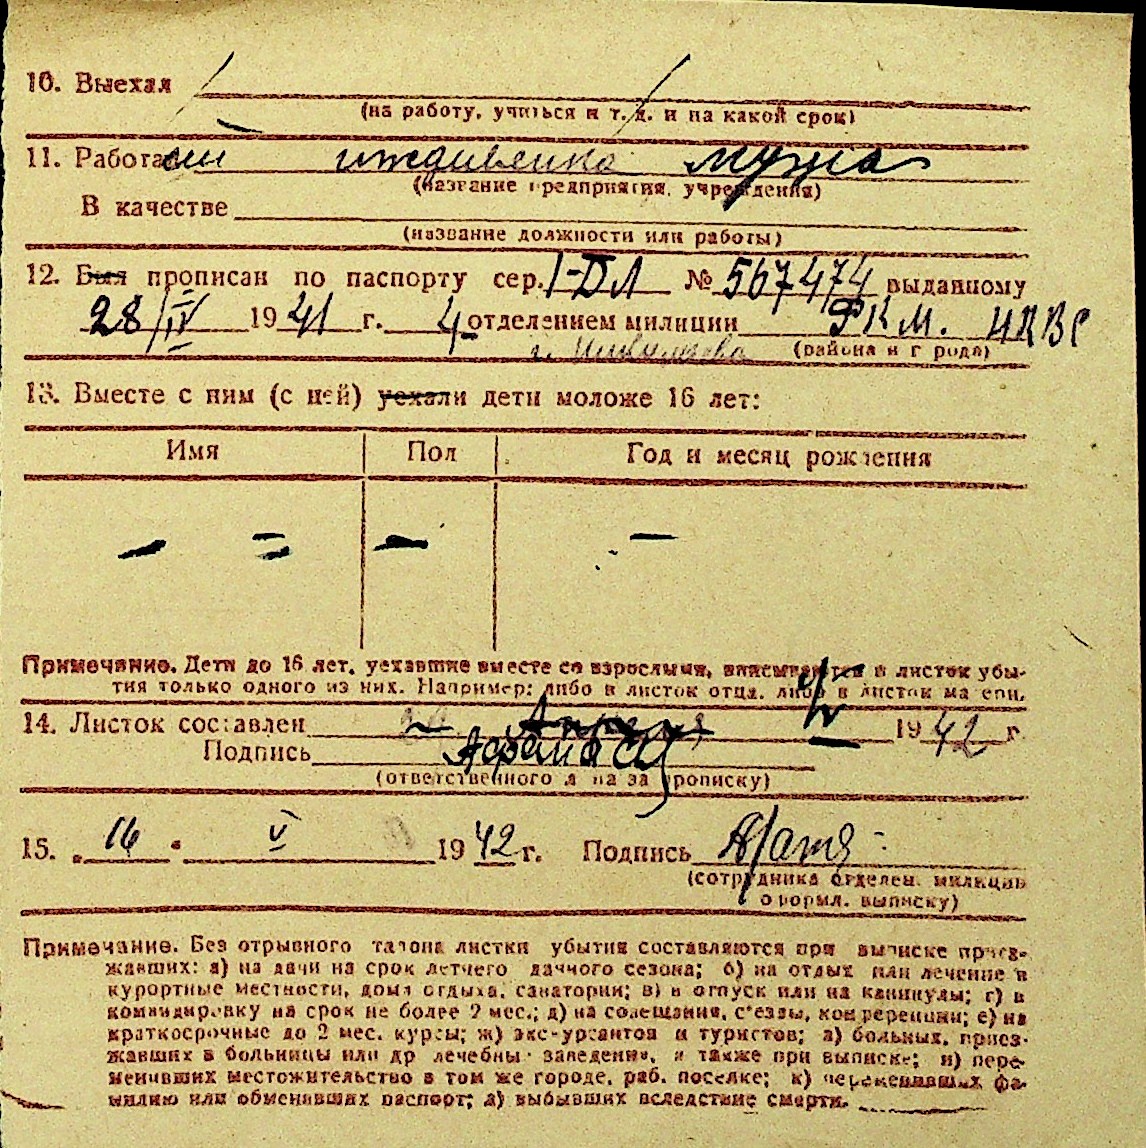 10. Выехал
(на работу, учиться и т. д. и на какой срок)
11. Работа иждивенка мужа
(название предприятия, учреждения)
В качестве
(название должности или работы)
12. Был прописан по паспорту сер. I-ДЛ № 567474 выданному
28/IV 1941 г. 4 отделением милиции РКМ. НКВС
г. (района и города)
13. Вместе с ним (с ней) уехали дети моложе 16 лет:
Имя Пол Год и месяц рождения
— = — —
Примечание. Дети до 16 лет, уехавшие вместе со взрослыми, вписываются в листок убы-
тия только одного из них. Например: либо в листок отца, либо в листок матери.
14. Листок составлен Апреля 1942 г.
Подпись
(ответственного лица за прописку)
15. 16 V 1942 г. Подпись
(сотрудника отделен. милиции
оформл. выписку)
Примечание. Без отрывного талона листки убытия составляются при выписке приез-
жавших: а) на дачи на срок летнего дачного сезона; б) на отдых или лечение в
курортные местности, дома отдыха, санатории; в) в отпуск или на каникулы; г) в
командировку на срок не более 2 мес.; д) на совещания, с'езды, конференции; е) на
краткосрочные до 2 мес. курсы; ж) экскурсантов и туристов; з) больных, приез-
жавших в больницы или др лечебны заведения, а также при выписке; и) пере-
менивших местожительство в том же городе, раб. поселке; к) переменивших фа-
милию или обменявших паспорт; л) выбывших вследствие смерти.